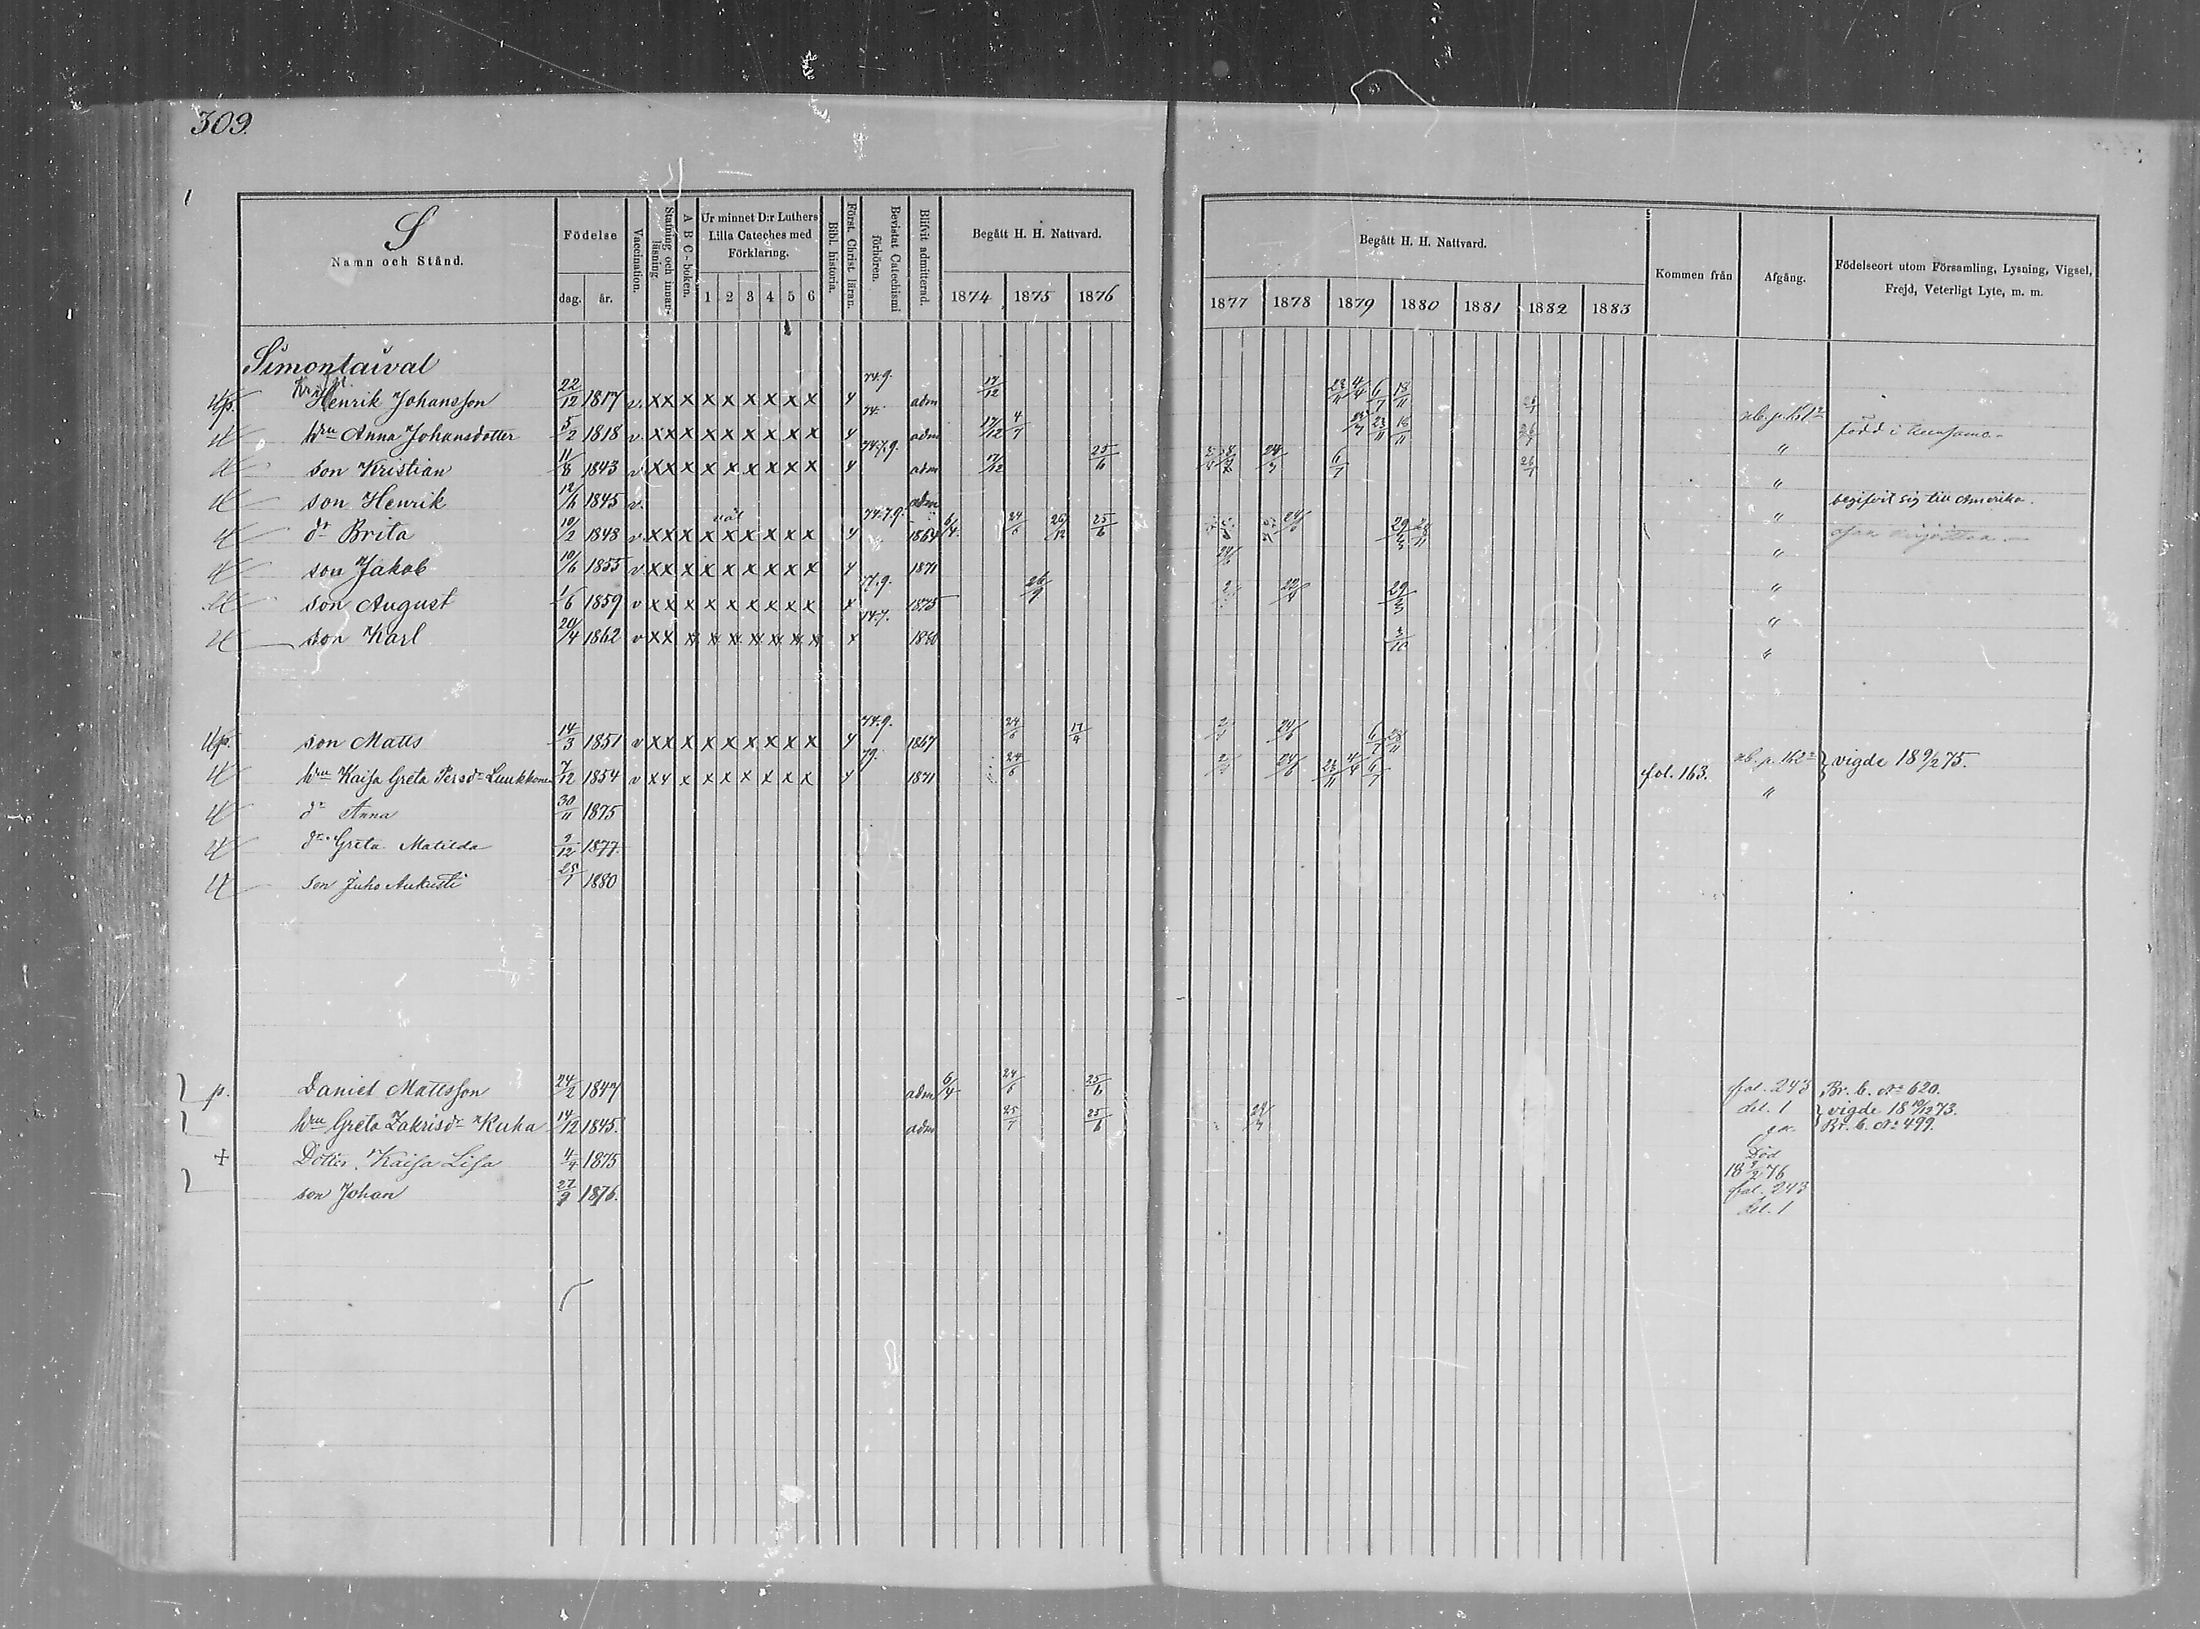 309.
S
Namn och Stånd.
Födelse
dag.
år.
Vaccination.
Stafning och innan-läsning
A B C - boken.
Ur minnet D:r Luthers Lilla Cateches med Förklaring.
1 2 3 4 5 6
Bibl. historia.
Först. Christ. läran.
Bevistat Catechismi förhören.
Blifvit admitterad.
Begått H. H. Nattvard.
1874 1875 1876
Begått H. H. Nattvard.
1877 1878 1879 1880 1881 1882 1883
Kommen från
Afgång.
Födelseort utom Församling, Lysning, Vigsel, Frejd, Veterligt Lyte, m. m.
Simontaival
Henrik Johansson 22/12 1817 v. x x x x x x x x x y 74.9. adm 17/12 23/11 4/4 6/7 18/11
hru Anna Johansdotter 5/2 1818 v. x x x x x x x x x y 74. adm 17/12 4/7 23/11 18/11 " född i
son Kristian 11/8 1843 v x x x x x x x x x y 74.7.9. adm 17/12 25/6 24/3 6/7 "
son Henrik 12/6 1845 v. adm " begifvit sig till Amerika.
dr Brita 10/2 1848 v. x x x x x x x x x y 74.7.9. 1864 6/4 24/6 26/12 25/6 24/6 29/3 "
son Jakob 10/6 1855 v. x x x x x x x x x y 1871 24/6 "
son August 1/6 1859 v x x x x x x x x x x 77.9. 1875 26/9 29/3 "
son Karl 20/4 1862 v x x x x x x x x x x 1880 3/10 "
son Matts 14/3 1851 v x x x x x x x x x y 74.9. 1867 24/6 17/9 24/6 6/7
hru Kaisa Greta Persdr Luukkonen 7/12 1854 v x y x x x x x x x y 79. 1871 24/6 24/6 23/11 4/4 6/7 fol. 163. nb. p. 162 } vigde 18 9/2 75.
dr Anna 30/11 1875 "
dr Greta Matilda 9/12 1877.
son Juho Aukusti 25/1 1880
p. Daniel Mattsson 24/2 1847 adm 6/4 24/6 25/6 fol. 243 del. 1 Br. b. No 620.
hru Greta Zakrisdr Kuha 14/12 1845. adm 25/7 25/6 } vigde 18 10/12 73. Br. b. No 499.
+ Dotter Kaisa Lisa 4/4 1875 Död 18 9/2 76
son Johan 27/9 1876. fol. 243 del. 1